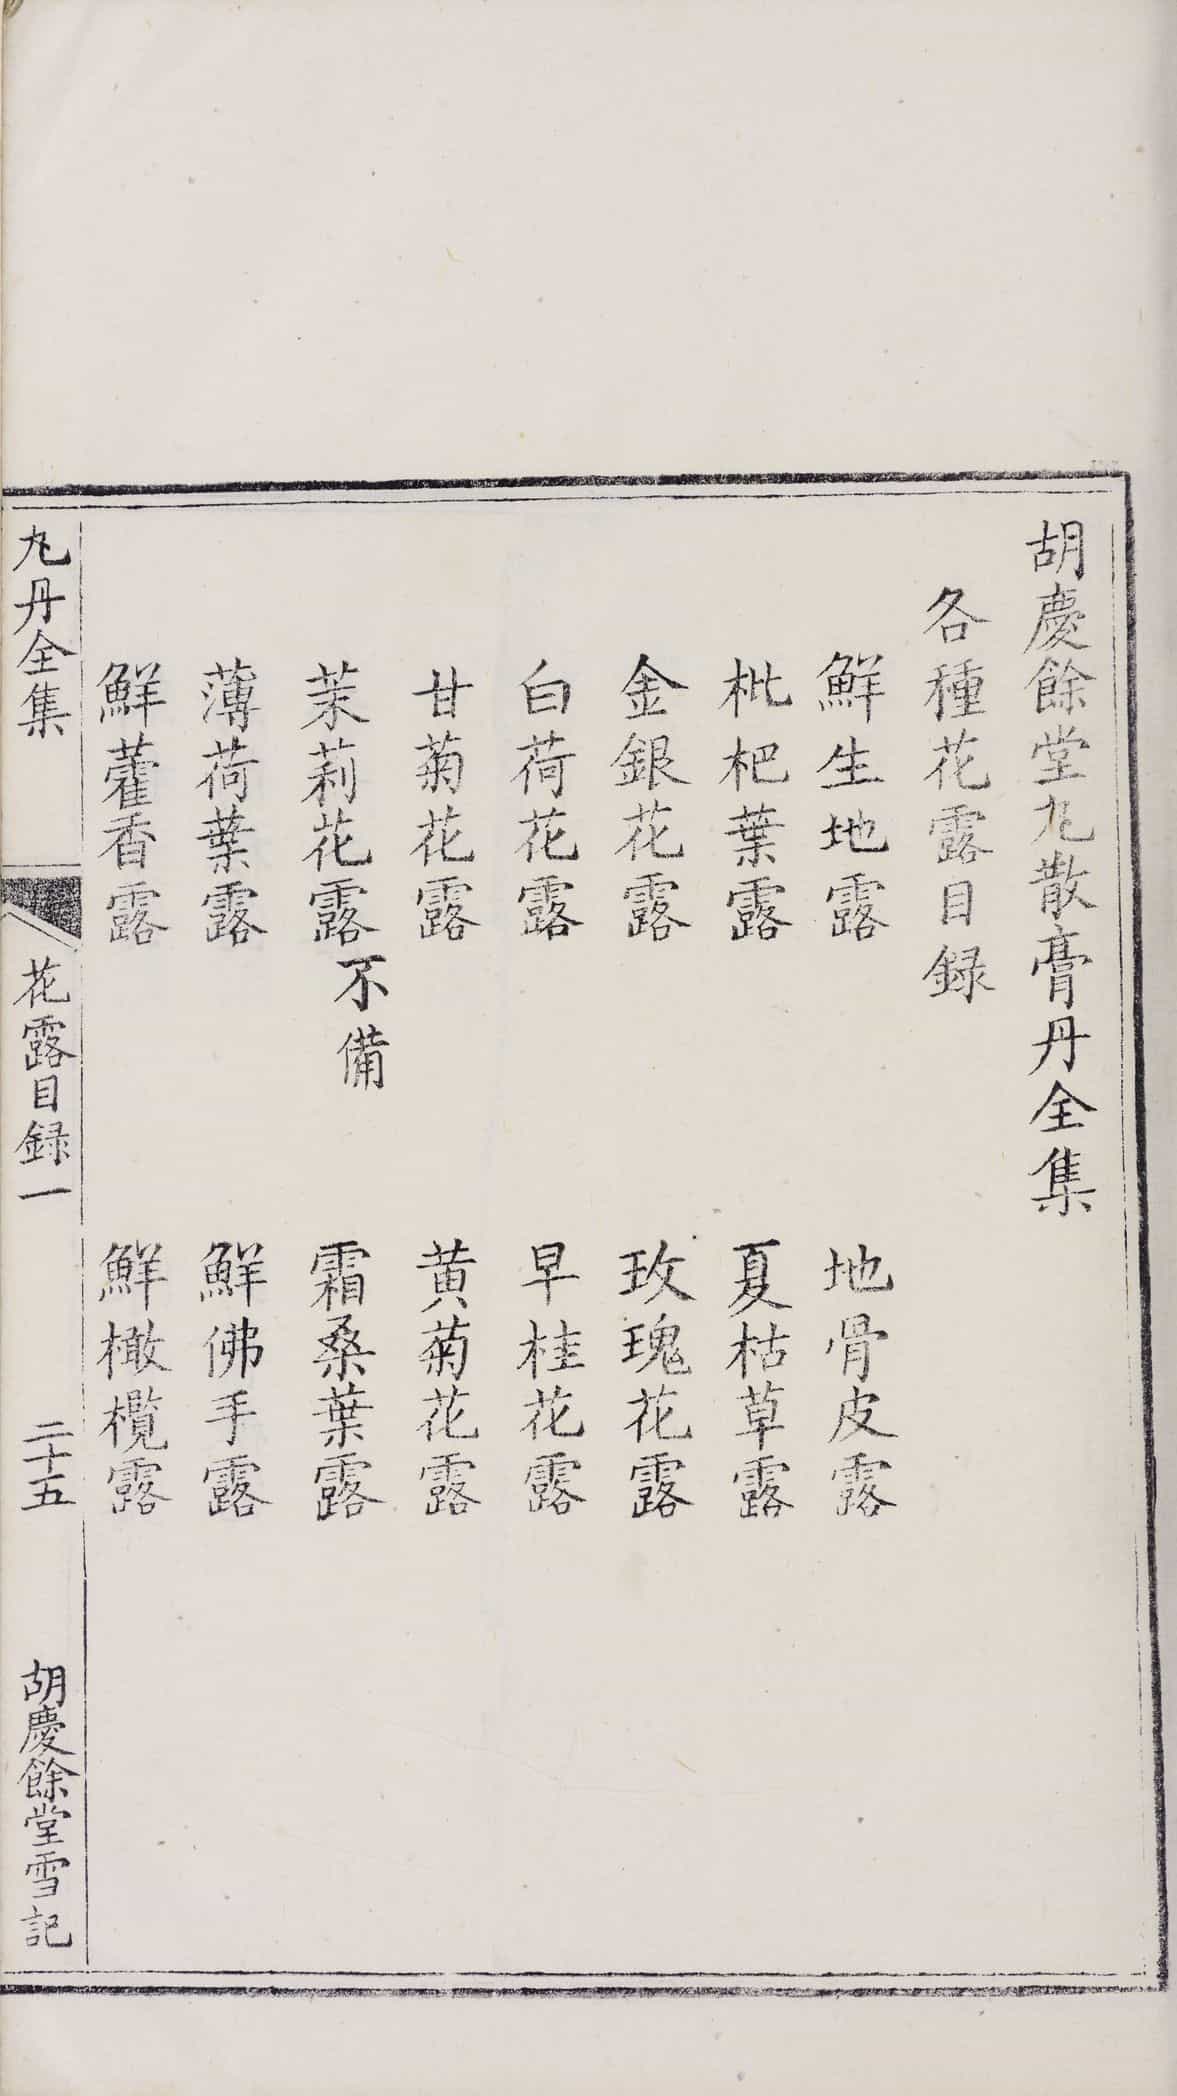 胡慶餘堂丸散膏丹全集
各種花露目録
鮮生地露
地骨皮露
枇杷葉露
夏枯草露
金銀花露
玫瑰花露
白荷花露
早桂花露
甘菊花露
黄菊花露
茉莉花露不備
霜桑葉露
薄荷葉露
鮮佛手露
鮮藿香露
鮮橄欖露
丸丹全集
花露目録一
二十五
胡慶餘堂雪記